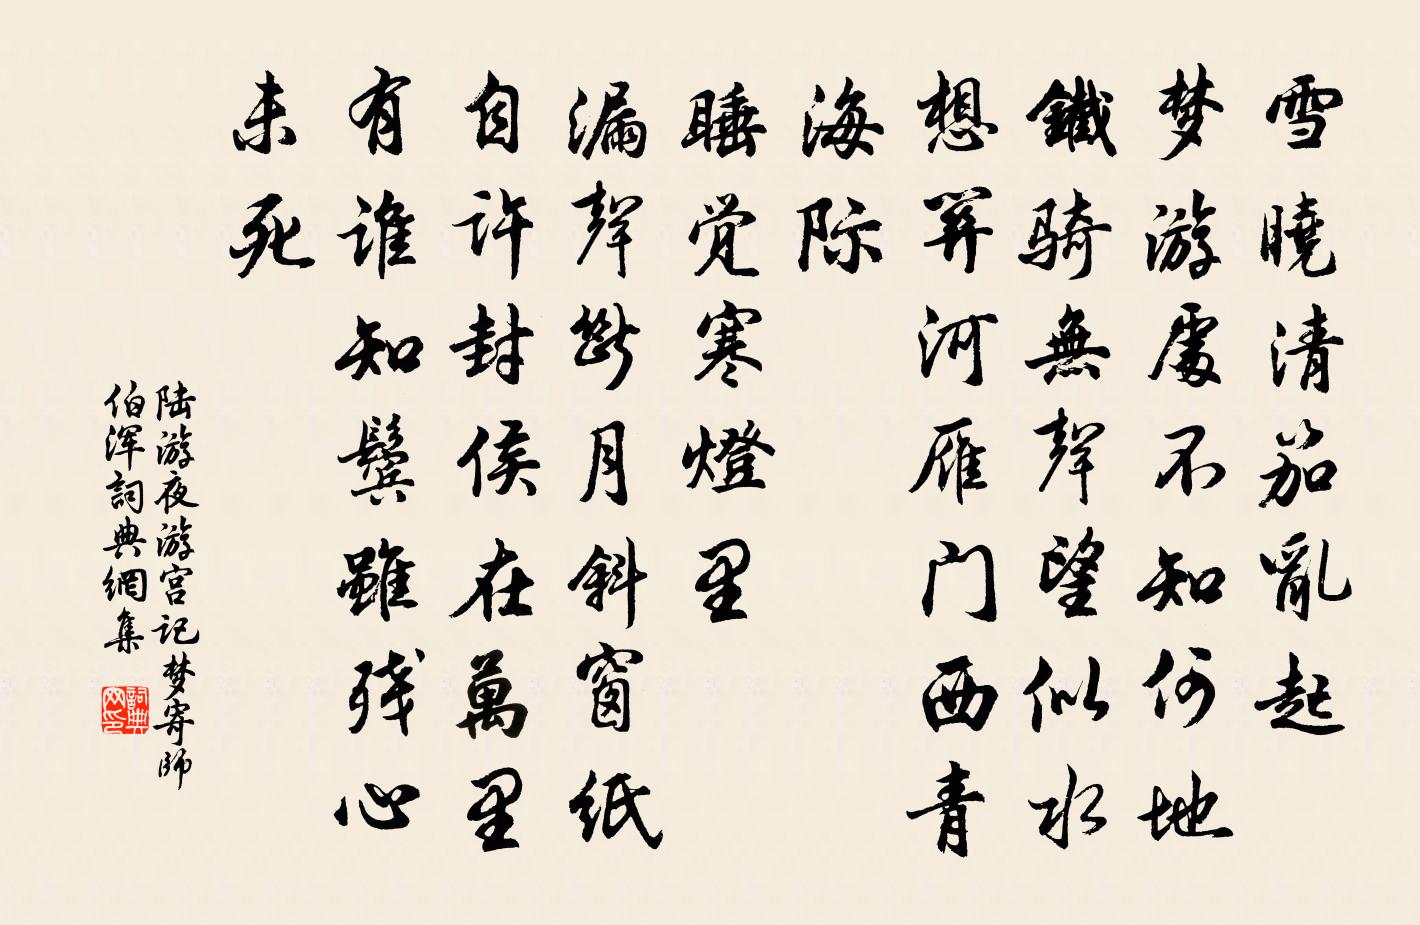 雪曉清笳亂起
梦游處不知何地
鐵騎無聲望似水
想關河雁门西青
海际
睡觉寒燈里
漏聲斷月斜窗紙
自许封侯在萬里
有谁知鬓雖残心
未死
陆游夜游宫记梦寄師
伯浑詞典網集
詞典网印